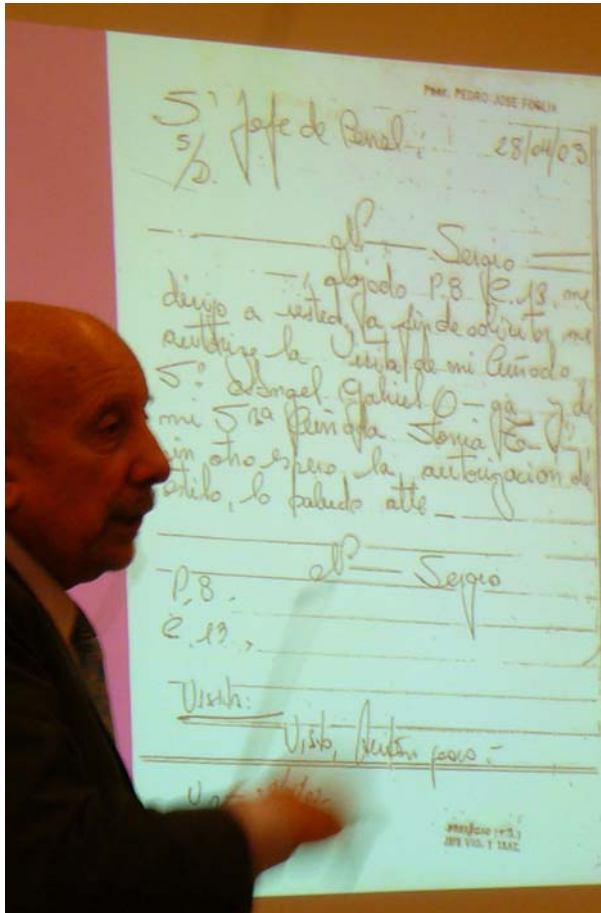 Prof. PEDRO JOSE FOGLIA
Sr Jefe de Penal: 28/04/03
S/D.
N— Sergio
—, alojado P.8 C.13, me
dirijo a usted, a fin de solicitar, me
autorize la Visita de mi Cuñado,
Sr. Angel Gabriel O—ga y de
mi Sra Cuñada Sonia
sin otro espero, la autorizacion de
estilo, lo saludo atte
N— Sergio
P. 8.
C. 13.,
Visita:
Visto,